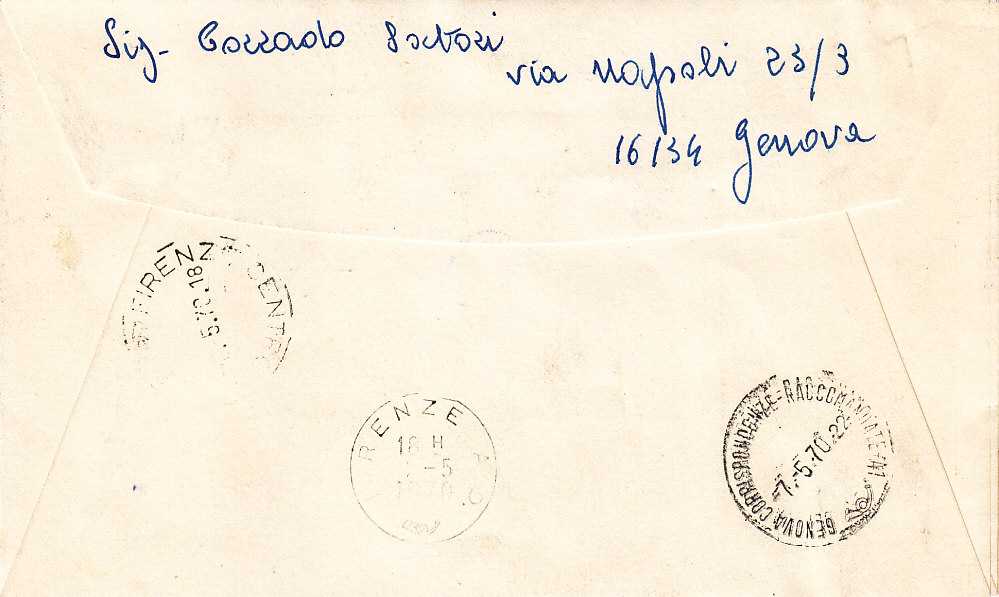 Sig. Corrado Sartori
via Napoli 23/3
16134 Genova
FIRENZE CENTR
5.70.18
RENZE A.
18 H
-5
GENOVA CORRISPONDENZE=RACCOMANDATE=(A)
-7.-5.70.22